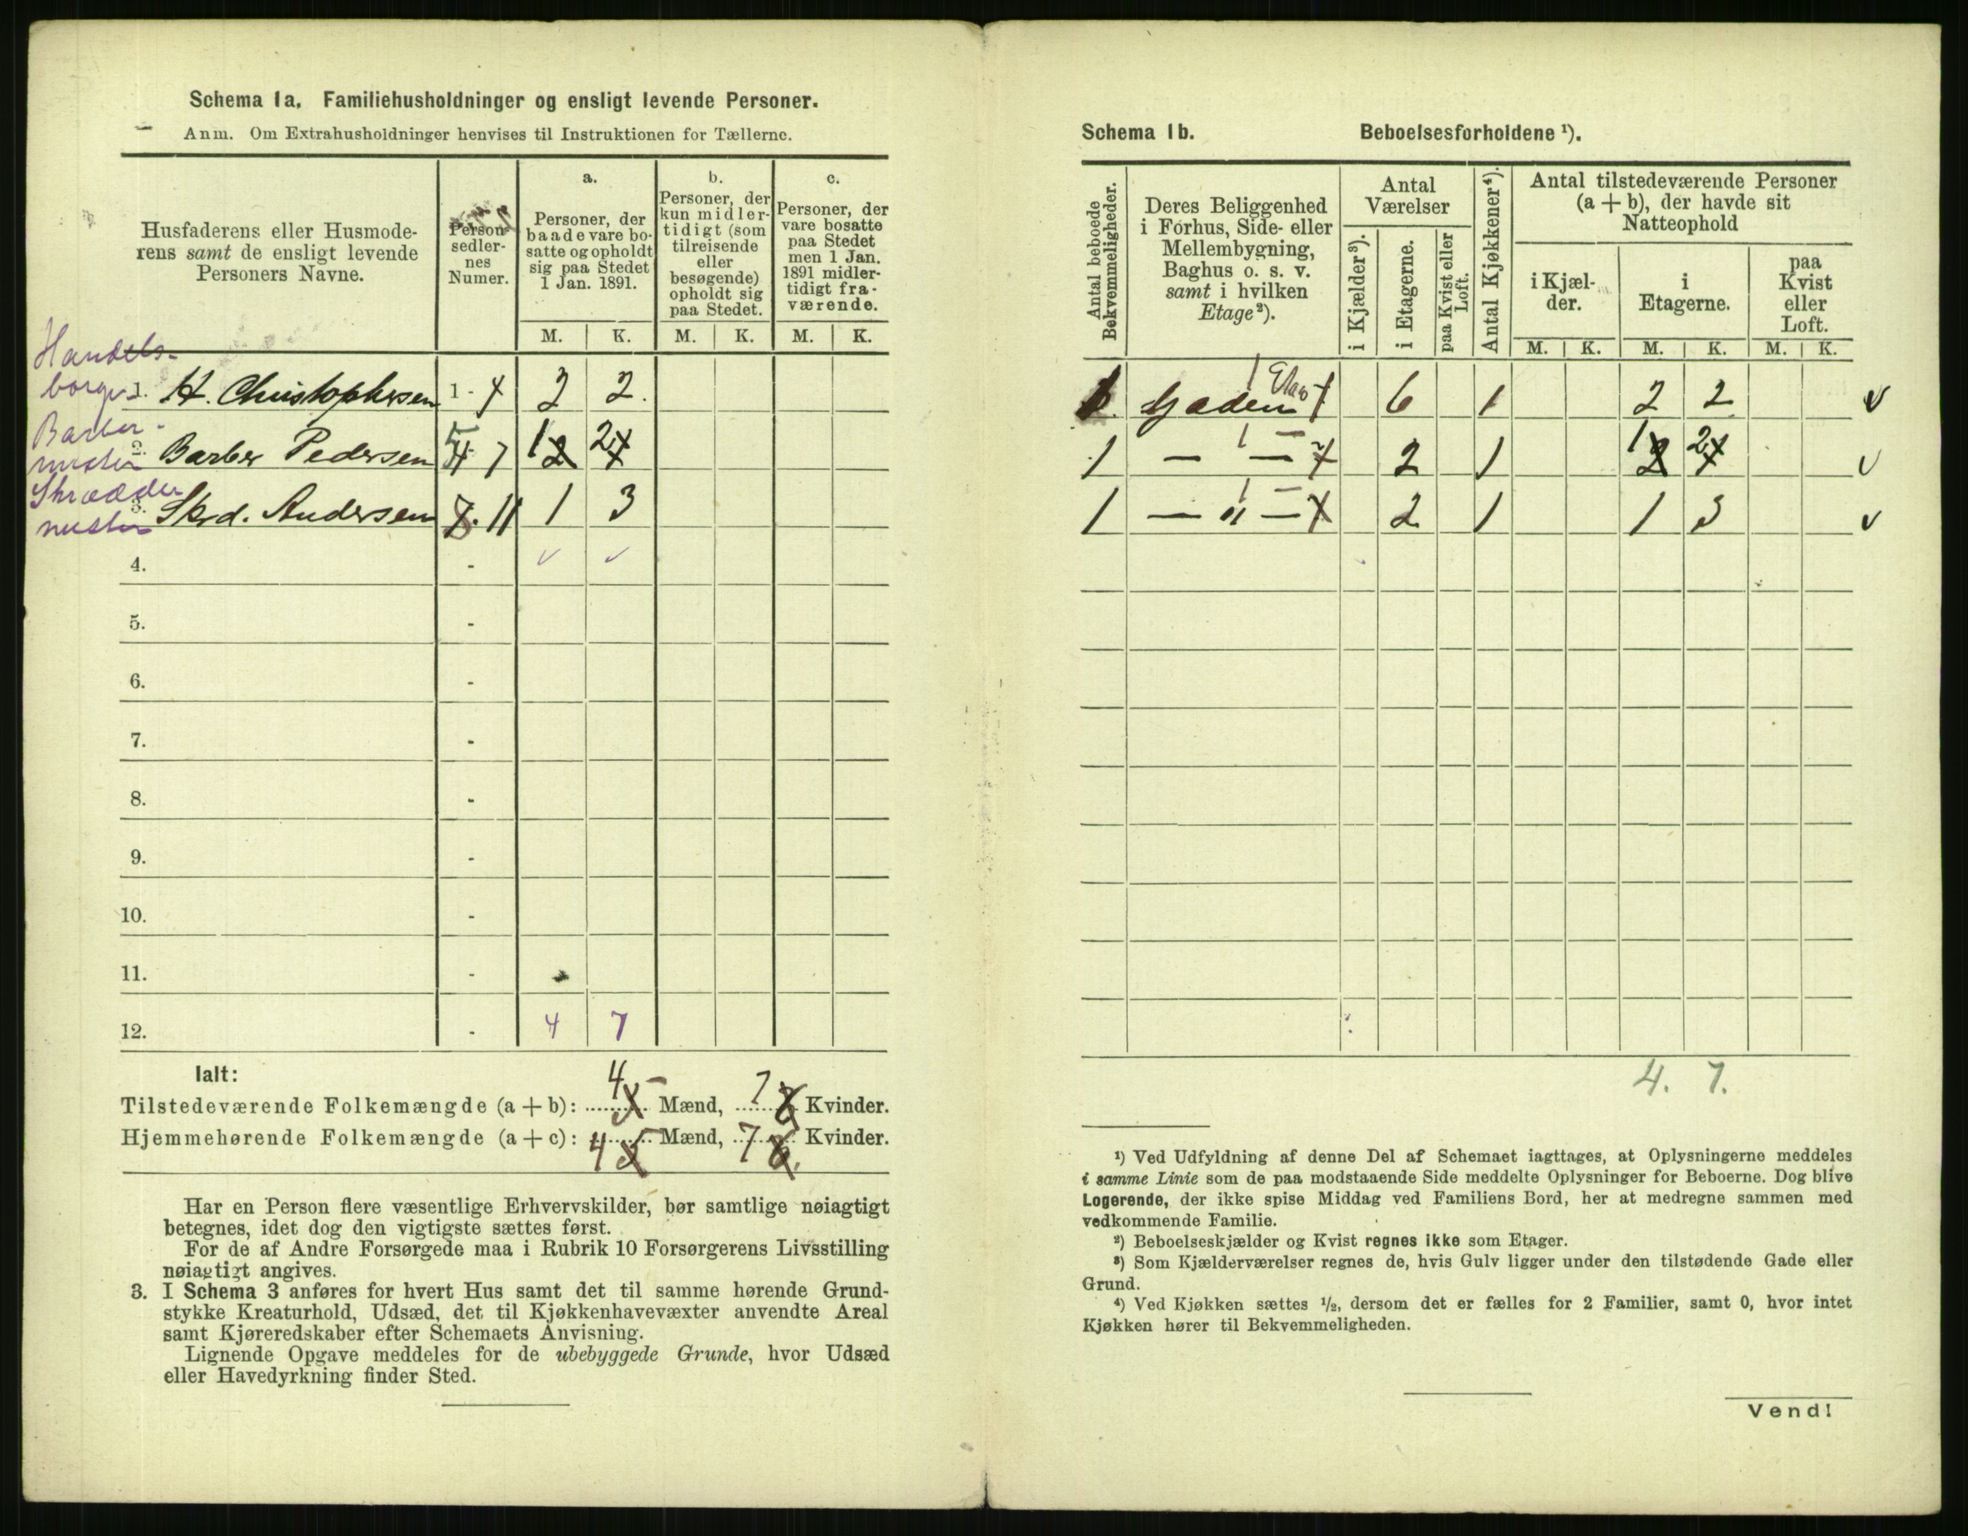 Schema 1a. Familiehusholdninger og ensligt levende Personer.
Anm. Om Extrahusholdninger henvises til Instruktionen for Tællerne.
Husfaderens eller Husmode-
rens samt de ensligt levende
Personers Navne.
Person-
sedler-
nes
Numer.
a.
Personer, der
baade vare bo-
satte og opholdt
sig paa Stedet
1 Jan. 1891.
b.
Personer, der
kun midler-
tidigt (som
tilreisende
eller
besøgende)
opholdt sig
paa Stedet.
c.
Personer, der
vare bosatte
paa Stedet
men 1 Jan.
1891 midler-
tidigt fra-
værende.
M. K. M. K. M. K.
Handels-
borger 1. H. Christophersen 1 - 4 2 2.
Barber-
mester 2. Barber Pedersen 5 7 1 2
Skrædder
mester 3. Skrd. Andersen 8 - 11 1 3
4. -
5. -
6. -
7. -
8. -
9. -
10. -
11. -
12. - 4 7
Ialt:
Tilstedeværende Folkemængde (a + b): 4 5 Mænd, 7 8 Kvinder.
Hjemmehørende Folkemængde (a + c): 4 5 Mænd, 7 6 Kvinder.
Har en Person flere væsentlige Erhvervskilder, bør samtlige nøiagtigt
betegnes, idet dog den vigtigste sættes først.
For de af Andre Forsørgede maa i Rubrik 10 Forsørgerens Livsstilling
nøiagtigt angives.
3. I Schema 3 anføres for hvert Hus samt det til samme hørende Grund-
stykke Kreaturhold, Udsæd, det til Kjøkkenhavevæxter anvendte Areal
samt Kjøreredskaber efter Schemaets Anvisning.
Lignende Opgave meddeles for de ubebyggede Grunde, hvor Udsæd
eller Havedyrkning finder Sted.
Schema 1b. Beboelsesforholdene ¹).
Antal beboede
Bekvemmeligheder.
Deres Beliggenhed
i Forhus, Side- eller
Mellembygning,
Baghus o. s. v.
samt i hvilken
Etage ²).
Antal
Værelser
i Kjælder ³).
i Etagerne.
paa Kvist eller
Loft.
Antal Kjøkkener ⁴).
Antal tilstedeværende Personer
(a + b), der havde sit
Natteophold
i Kjæl-
der.
i
Etagerne.
paa
Kvist
eller
Loft.
M. K. M. K. M. K.
1. Gaden 1 Etag 6 1 2 2
1 — 1 — 2 1 1 2
1 — " — 1 — 2 1 1 3
4. 7.
¹) Ved Udfyldning af denne Del af Schemaet iagttages, at Oplysningerne meddeles
i samme Linie som de paa modstaaende Side meddelte Oplysninger for Beboerne. Dog blive
Logerende, der ikke spise Middag ved Familiens Bord, her at medregne sammen med
vedkommende Familie.
²) Beboelseskjælder og Kvist regnes ikke som Etager.
³) Som Kjælderværelser regnes de, hvis Gulv ligger under den tilstødende Gade eller
Grund.
⁴) Ved Kjøkken sættes ½, dersom det er fælles for 2 Familier, samt 0, hvor intet
Kjøkken hører til Bekvemmeligheden.
Vend!